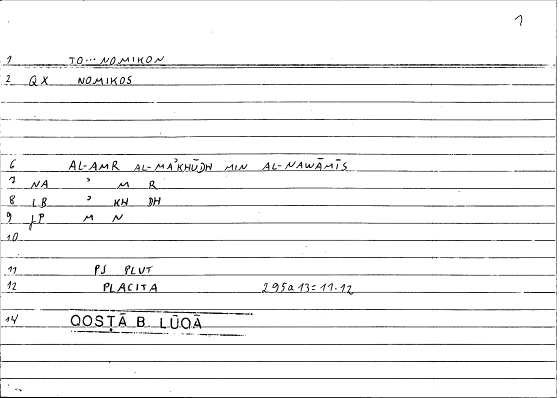 1
1 TO... NOMIKON
2 QX NOMIKOS
6 AL-AMR AL-MAʾKHŪDH MIN AL-NAWĀMĪS
7 NA ʾ M R
8 LB ʾ KH DH
9 JP M N
10
11 PS PLUT
12 PLACITA 295a13=11.12
14 QOSṬĀ B. LŪQĀ